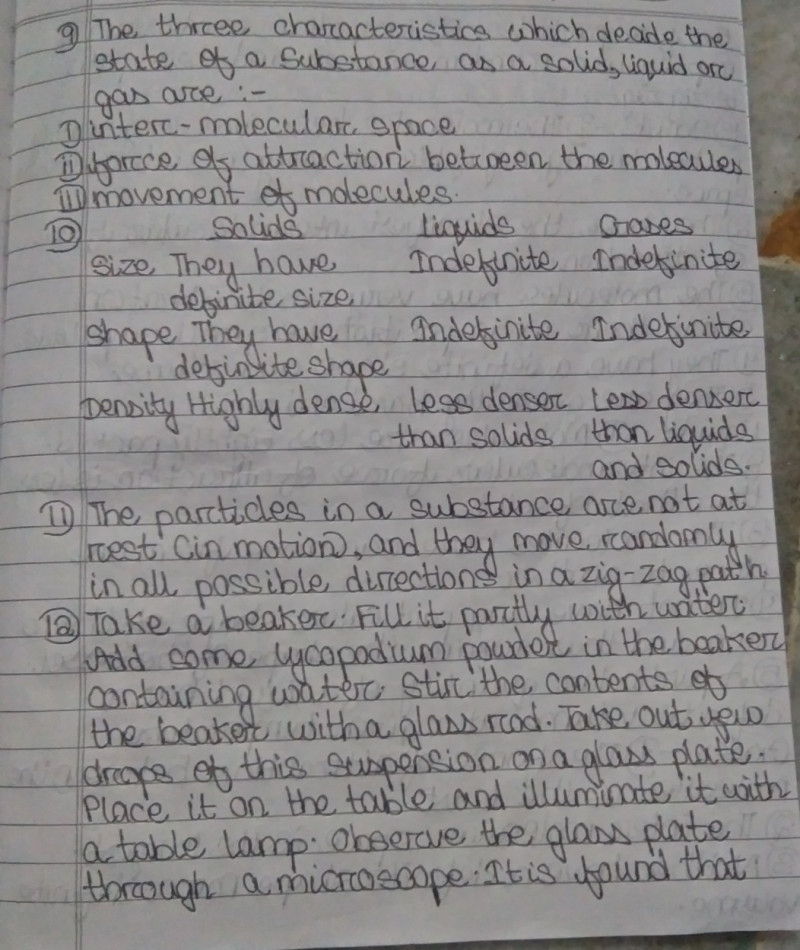 9) The three characteristics which decide the
state of a substance as a solid, liquid or
gas are :-
i) inter-molecular space
ii) force of attraction between the molecules
iii) movement of molecules.
10) Solids Liquids Gases
Size They have Indefinite Indefinite
definite size
Shape They have Indefinite Indefinite
definite shape
Density Highly dense Less denser Less denser
than solids than liquids
and solids.
11) The particles in a substance are not at
rest (in motion), and they move randomly
in all possible directions in a zig-zag path.
12) Take a beaker. Fill it partly with water.
Add some lycopodium powder in the beaker
containing water. Stir the contents of
the beaker with a glass rod. Take out few
drops of this suspension on a glass plate.
Place it on the table and illuminate it with
a table lamp. Observe the glass plate
through a microscope. It is found that